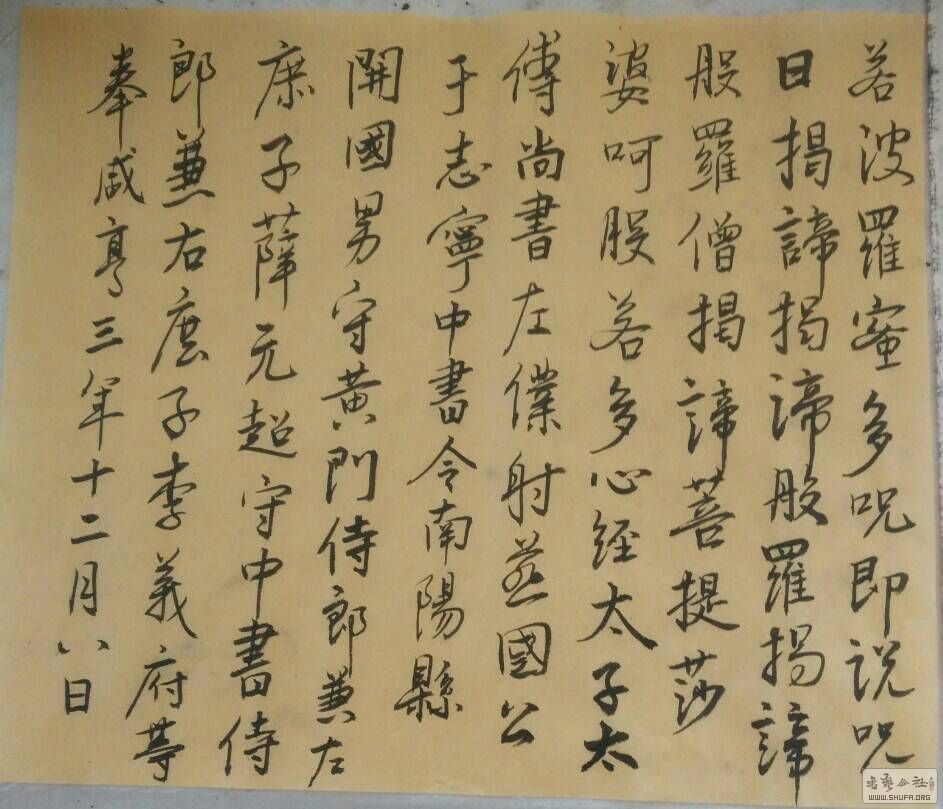 若波羅蜜多咒即说咒
曰揭諦揭諦般羅揭諦
般羅僧揭諦菩提莎
婆呵般若多心経太子太
傅尚書左僕射燕國公
于志寧中書令南陽縣
開國男守黃門侍郎兼左
庶子薛元超守中書侍
郎兼右庶子李義府等
奉咸亨三年十二月八日
书艺公社
WWW.SHUFA.ORG